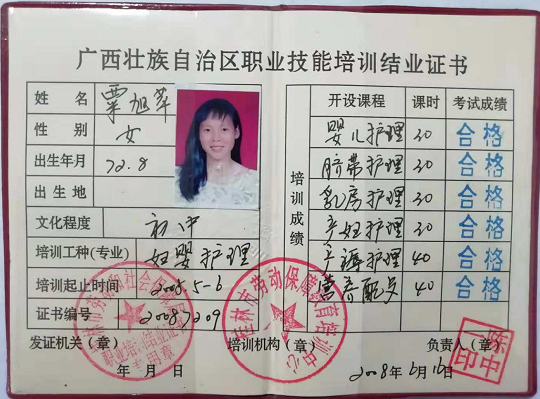 广西壮族自治区职业技能培训结业证书
姓名 覃旭萍
性别 女
出生年月 72.8
出生地
文化程度 初中
培训工种(专业) 妇婴护理
培训起止时间 2008.5-6
证书编号 20087209
发证机关(章)
年 月 日
培训成绩
开设课程 课时 考试成绩
婴儿护理 30 合格
脐带护理 30 合格
乳房护理 30 合格
产妇护理 30 合格
产褥护理 40 合格
营养配与 40 合格
培训机构(章) 负责人(章)
2008年6月16日
桂林市劳动保障教育培训中心
桂林市劳动和社会
职业培训
专用章